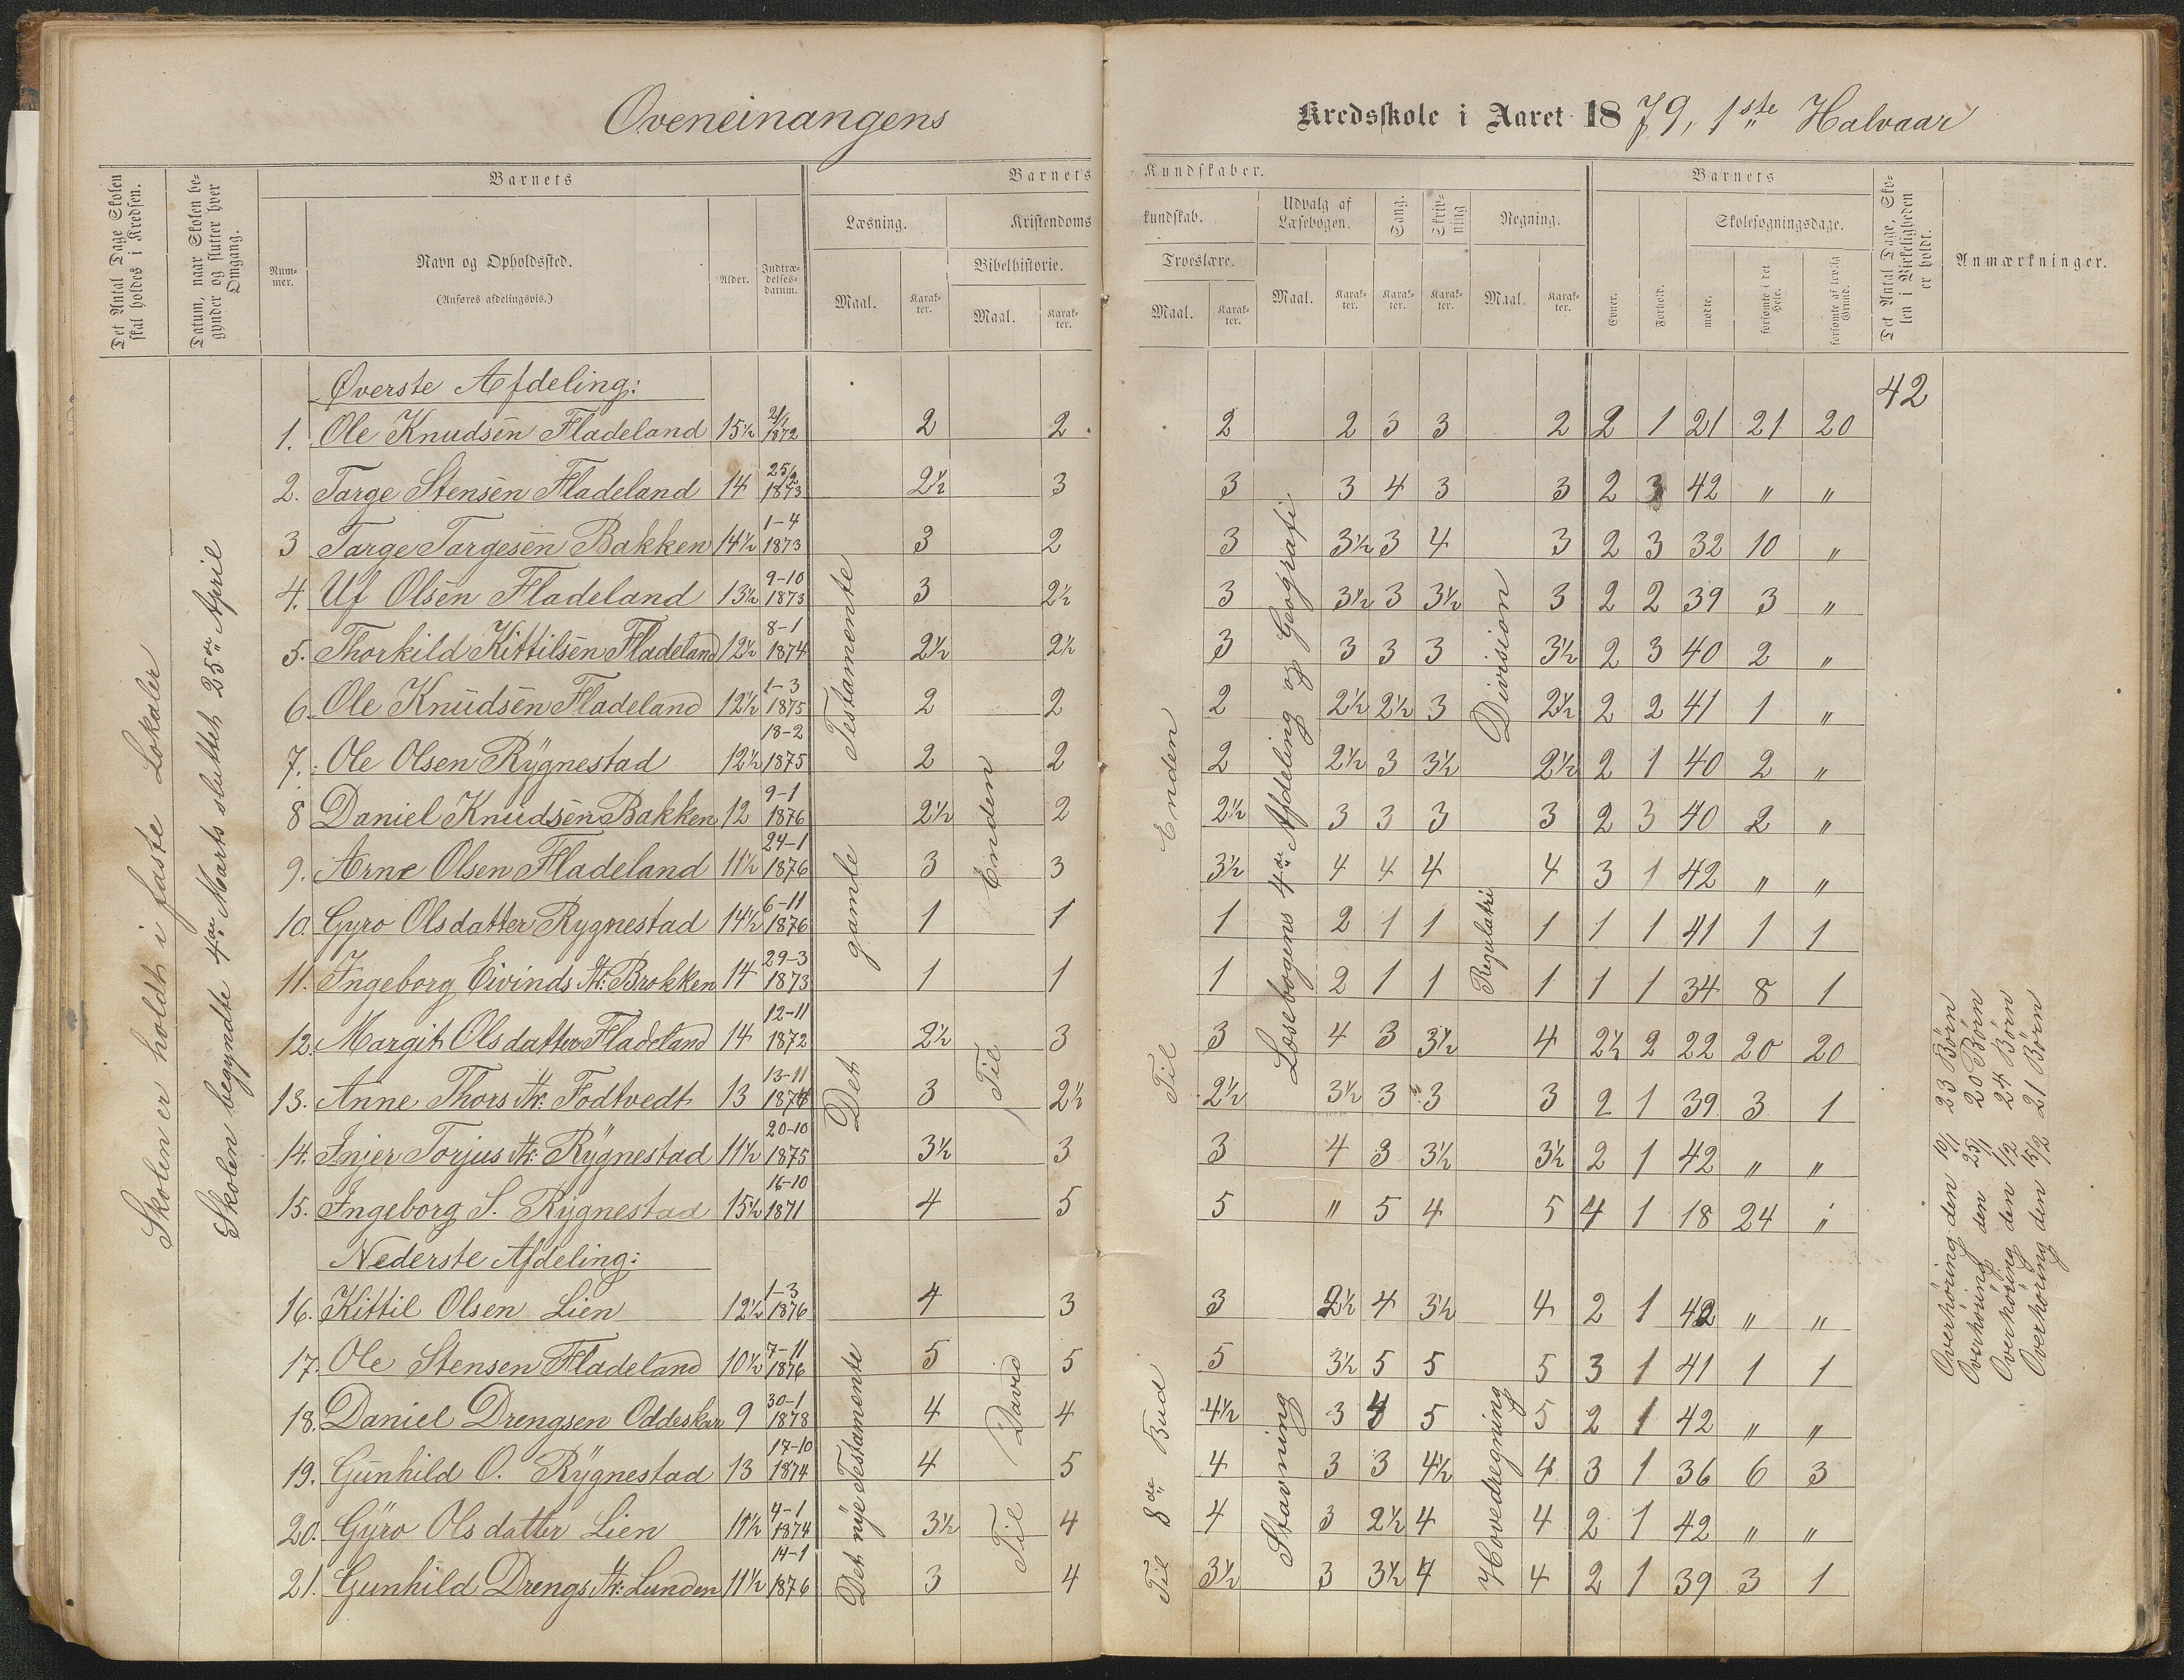 Oveneinangens Kredsskole i Aaret 1879, 1ste Halvaar
Det Antal Dage Skolen skal holdes i Kredsen.
Datum, naar Skolen begynder og slutter hver Omgang.
Barnets
Nummer.
Navn og Opholdssted.
(Anføres afdelingsvis.)
Alder.
Indtrædelsesdatum.
Barnets Kundskaber.
Læsning.
Maal. Karakter.
Kristendomskundskab.
Bibelhistorie.
Maal. Karakter.
Troeslære.
Maal. Karakter.
Udvalg af Læsebogen.
Maal. Karakter.
Sang.
Karakter.
Skrivning
Karakter.
Regning.
Maal. Karakter.
Barnets
Evner.
Forhold.
Skolesøgningsdage.
mødte.
forsømte i det Hele.
forsømte af lovlig Grund.
Det Antal Dage, Skolen i Virkeligheden er holdt.
Anmærkninger.
Skolen er holdt i faste Lokaler
Skolen begyndte 4de Marts sluttet 25de April
Øverste Afdeling:
42
1. Ole Knudsen Fladeland 15½ 21/1 1872 2 2 2 2 3 3 2 2 1 21 21 20
2. Targe Stensen Fladeland 14 25/2 1873 2½ 3 3 3 4 3 3 2 3 42 " "
3 Targe Targesen Bakken 14½ 1-4 1873 3 2 3 3½ 3 4 3 2 3 32 10 "
4. Uf Olsen Fladeland 13½ 9-10 1873 3 2½ 3 3½ 3 3½ 3 2 2 39 3 "
5. Thorkild Kittilsen Fladeland 12½ 8-1 1874 2½ 2½ 3 3 3 3 3½ 2 3 40 2 "
6. Ole Knudsen Fladeland 12½ 1-3 1875 2 2 2 2½ 2½ 3 2½ 2 2 41 1 "
7. Ole Olsen Rygnestad 12½ 18-2 1875 2 2 2 2½ 3 3½ 2½ 2 1 40 2 "
8 Daniel Knudsen Bakken 12 9-1 1876 2½ 2 2½ 3 3 3 3 2 3 40 2 "
9. Arne Olsen Fladeland 11½ 24-1 1876 3 3 3½ 4 4 4 4 3 1 42 " "
10. Gyro Olsdatter Rygnestad 14½ 6-11 1876 1 1 1 2 1 1 1 1 1 41 1 1
11. Ingeborg Eivinds Dtr: Brokken 14 29-3 1873 1 1 1 2 1 1 1 1 1 34 8 1
12. Margit Olsdatter Fladeland 14 12-11 1872 2½ 3 3 4 3 3½ 4 2½ 2 22 20 20
13. Anne Thors Dtr: Fodtvedt 13 13-11 1874 3 2½ 2½ 3½ 3 3 3 2 1 39 3 1
14. Injer Torjus Dtr: Rygnestad 11½ 20-10 1875 3½ 3 3 4 3 3½ 3½ 2 1 42 " "
15. Ingeborg S. Rygnestad 15½ 16-10 1871 4 5 5 " 5 4 5 4 1 18 24 "
Det gamle Testamente
Til Enden
Til Enden
Læsebogens 4de Afdeling og Geografi
Division
Regulatri
Nederste Afdeling:
16. Kittil Olsen Lien 12½ 1-3 1876 4 3 3 2½ 4 3½ 4 2 1 42 " "
17. Ole Stensen Fladeland 10½ 7-11 1876 5 5 5 3½ 5 5 5 3 1 41 1 1
18. Daniel Drengsen Oddeskar 9 30-1 1878 4 4 4½ 3 4 5 5 2 1 42 " "
19. Gunhild O. Rygnestad 13 17-10 1874 4 5 4 3 3 4½ 4 3 1 36 6 3
20. Gyro Olsdatter Lien 11½ 4-1 1874 3½ 4 4 3 2½ 4 4 2 1 42 " "
21. Gunhild Drengs Dtr: Lunden 11½ 14-1 1876 3 4 3½ 3 3½ 4 4 2 1 39 3 1
Det nye Testamente
Til David
Til 8de Bud
Stavning
Hovedregning
Overhøring den 10/1 23 Børn
Overhøring den 25/1 20 Børn
Overhøring den 1/2 24 Børn
Overhøring den 15/2 21 Børn